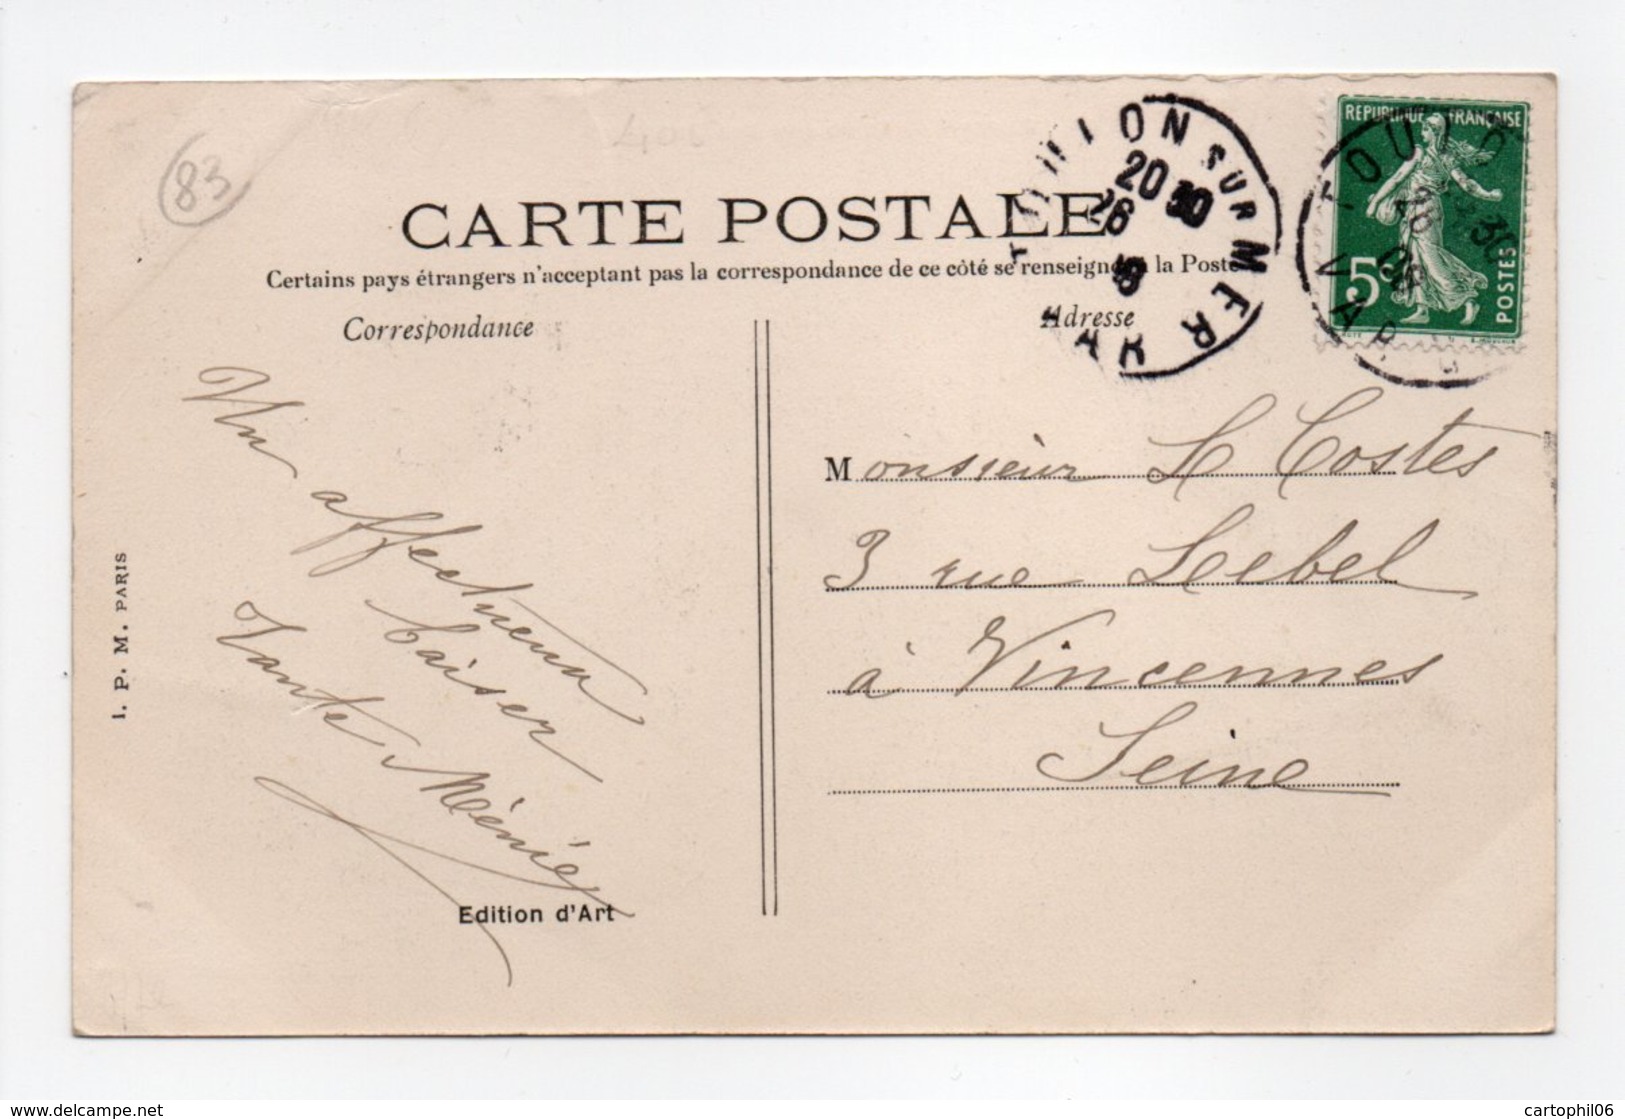 83
CARTE POSTALE
Certains pays étrangers n'acceptant pas la correspondance de ce côté se renseigner à la Poste
Correspondance
Adresse
SUR MER
20 30
26
VAR
REPUBLIQUE FRANÇAISE
5c
POSTES
TOULON
VAR
Un
affectueux
baiser
Tante Ménier
Edition d'Art
I. P. M. PARIS
Monsieur L Costes
3 rue Lebel
à Vincennes
Seine
cartophil06